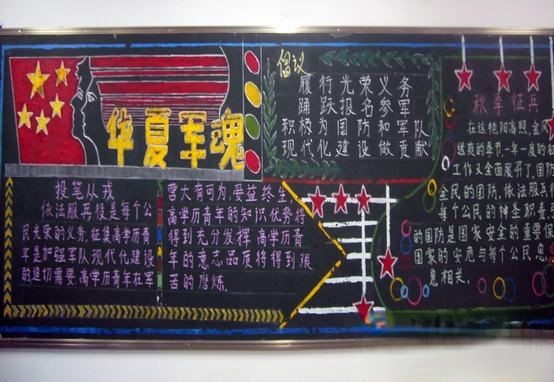 华夏军魂
投笔从戎
依法服兵役是每个公
民光荣的义务，征集高学历青
年是加强军队现代化建设
的迫切需要，高学历青年在军
营大有可为，受益终生，
高学历青年的知识优势将
得到充分发挥，高学历青
年的意志品质将得到艰
苦的磨炼。
倡议
履行光荣义务
踊跃报名参军
积极为国防和军队
现代化建设做贡献
秋季征兵
在这艳阳高照，金风
送爽的季节，一年一度的征
工作又全面展开了，国防
全民的国防，依法服兵
每个公民的神圣职责
的国防是国家安全的重要保
国家的安危与每个公民息
息相关。